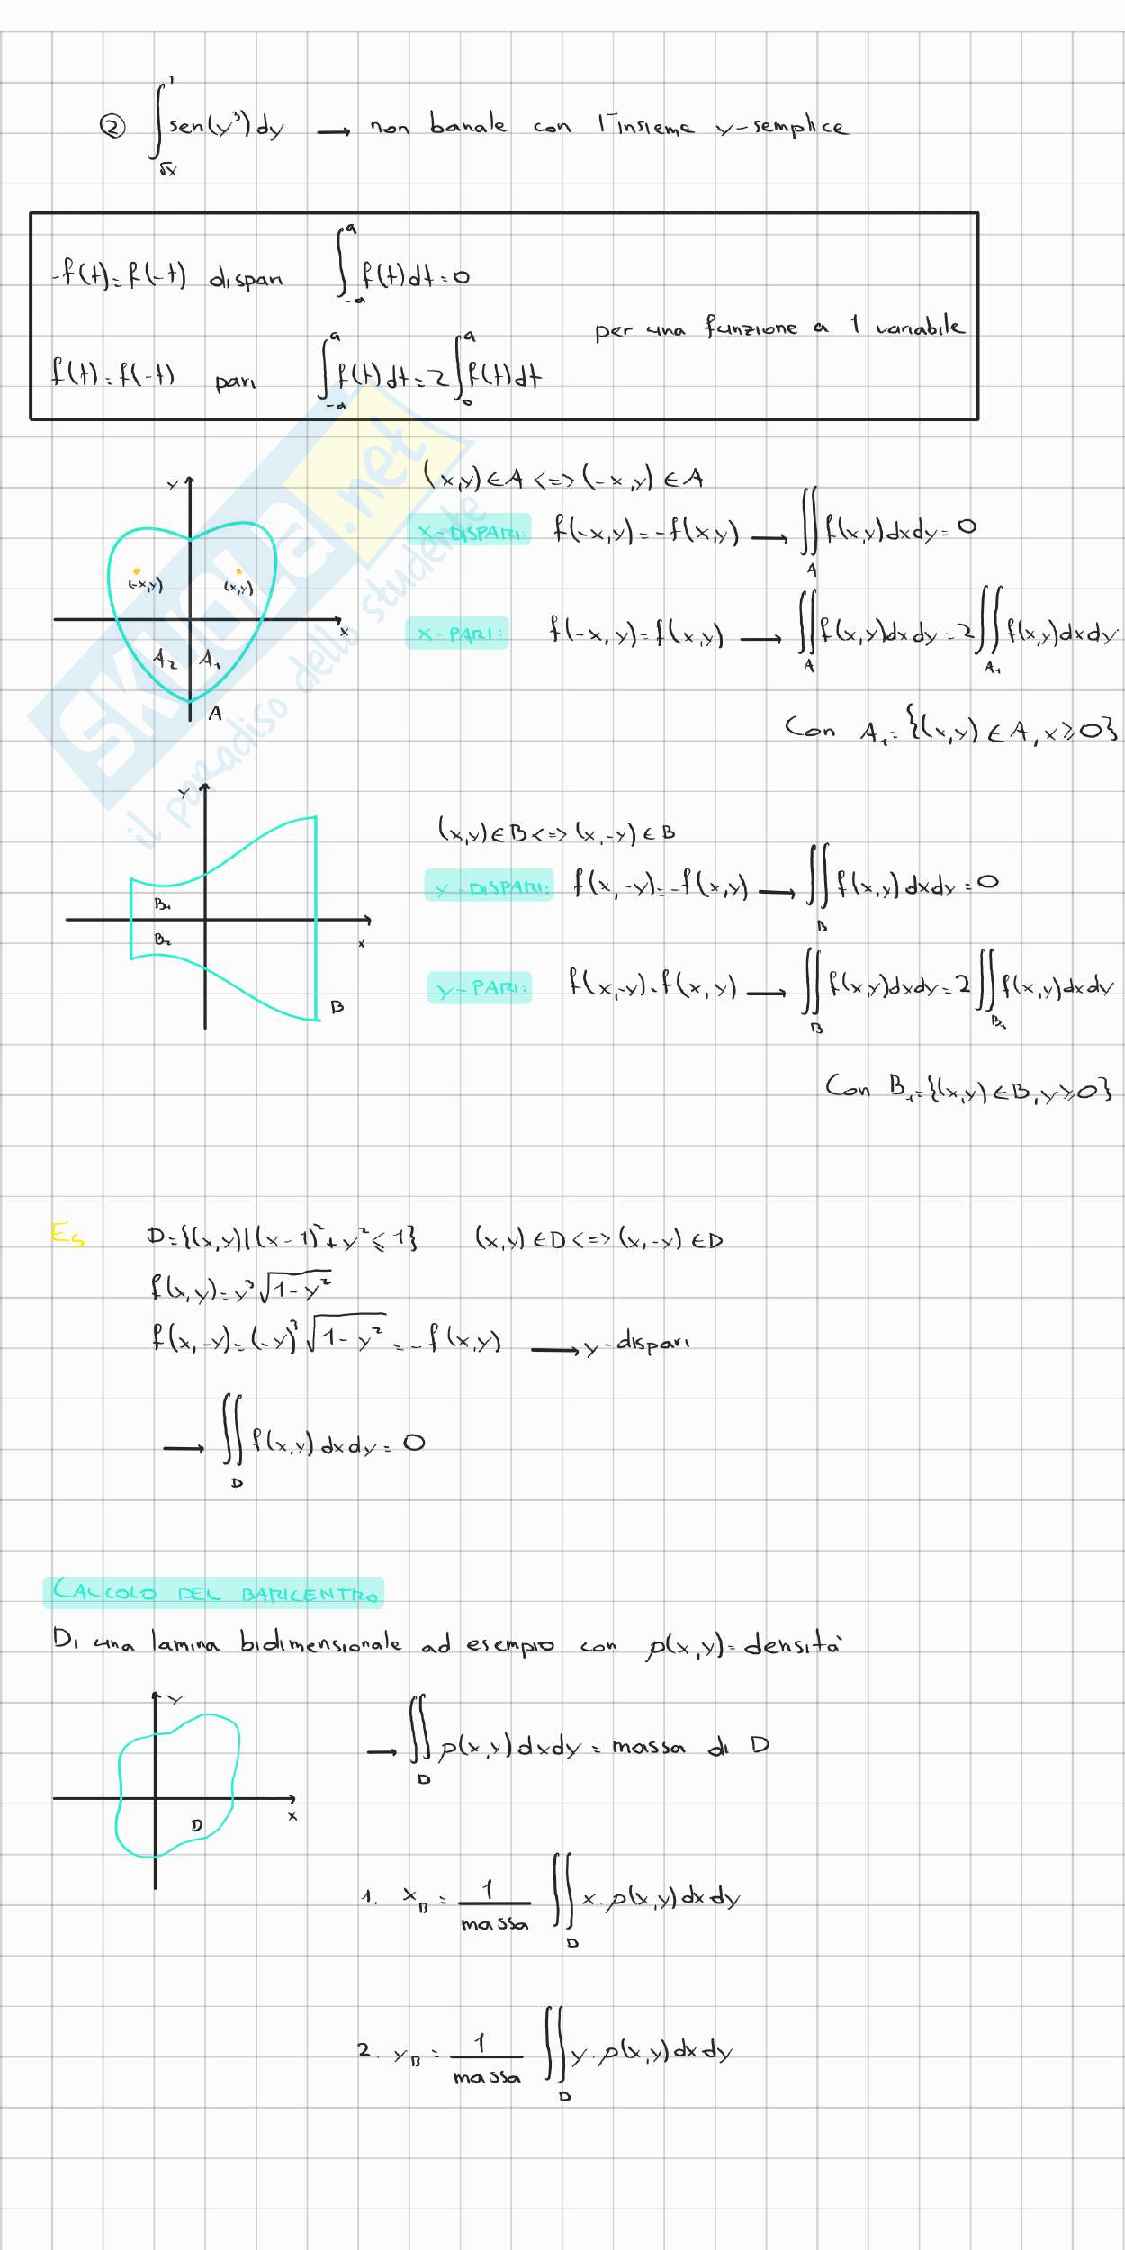 ② ∫_{√x}^{1} sen(y³)dy → non banale con l'insieme y-semplice
-f(t)=f(-t) dispari ∫_{-a}^{a} f(t)dt=0
per una funzione a 1 variabile
f(t)=f(-t) pari ∫_{-a}^{a} f(t)dt=2∫_{0}^{a} f(t)dt
(x,y)∈A <=> (-x,y)∈A
X-DISPARI: f(-x,y)=-f(x,y) → ∬_A f(x,y)dxdy=0
X-PARI: f(-x,y)=f(x,y) → ∬_A f(x,y)dxdy=2∬_{A₁} f(x,y)dxdy
Con A₁={(x,y)∈A, x≥0}
y
(-x,y) (x,y)
x
A₂ A₁
A
(x,y)∈B <=> (x,-y)∈B
y-DISPARI: f(x,-y)=-f(x,y) → ∬_B f(x,y)dxdy=0
y-PARI: f(x,-y)=f(x,y) → ∬_B f(x,y)dxdy=2∬_{B₁} f(x,y)dxdy
Con B₁={(x,y)∈B, y≥0}
y
B₁
B₂
x
B
Es D={(x,y)|(x-1)²+y²≤1} (x,y)∈D <=> (x,-y)∈D
f(x,y)=y³√(1-y²)
f(x,-y)=(-y)³√(1-y²)=-f(x,y) → y-dispari
→ ∬_D f(x,y)dxdy=0
CALCOLO DEL BARICENTRO
Di una lamina bidimensionale ad esempio con ρ(x,y)=densità
y
x
D
→ ∬_D ρ(x,y)dxdy=massa di D
1. x_B = 1/massa ∬_D x·ρ(x,y)dxdy
2. y_B = 1/massa ∬_D y·ρ(x,y)dxdy
SKUOLA.net
il paradiso dello studente